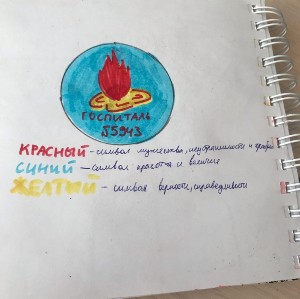 ГОСПИТАЛЬ
5943
КРАСНЫЙ - символ мужества, неустрашимости и
СИНИЙ - символ красоты и величия
ЖЕЛТЫЙ - символ верности, справедливости